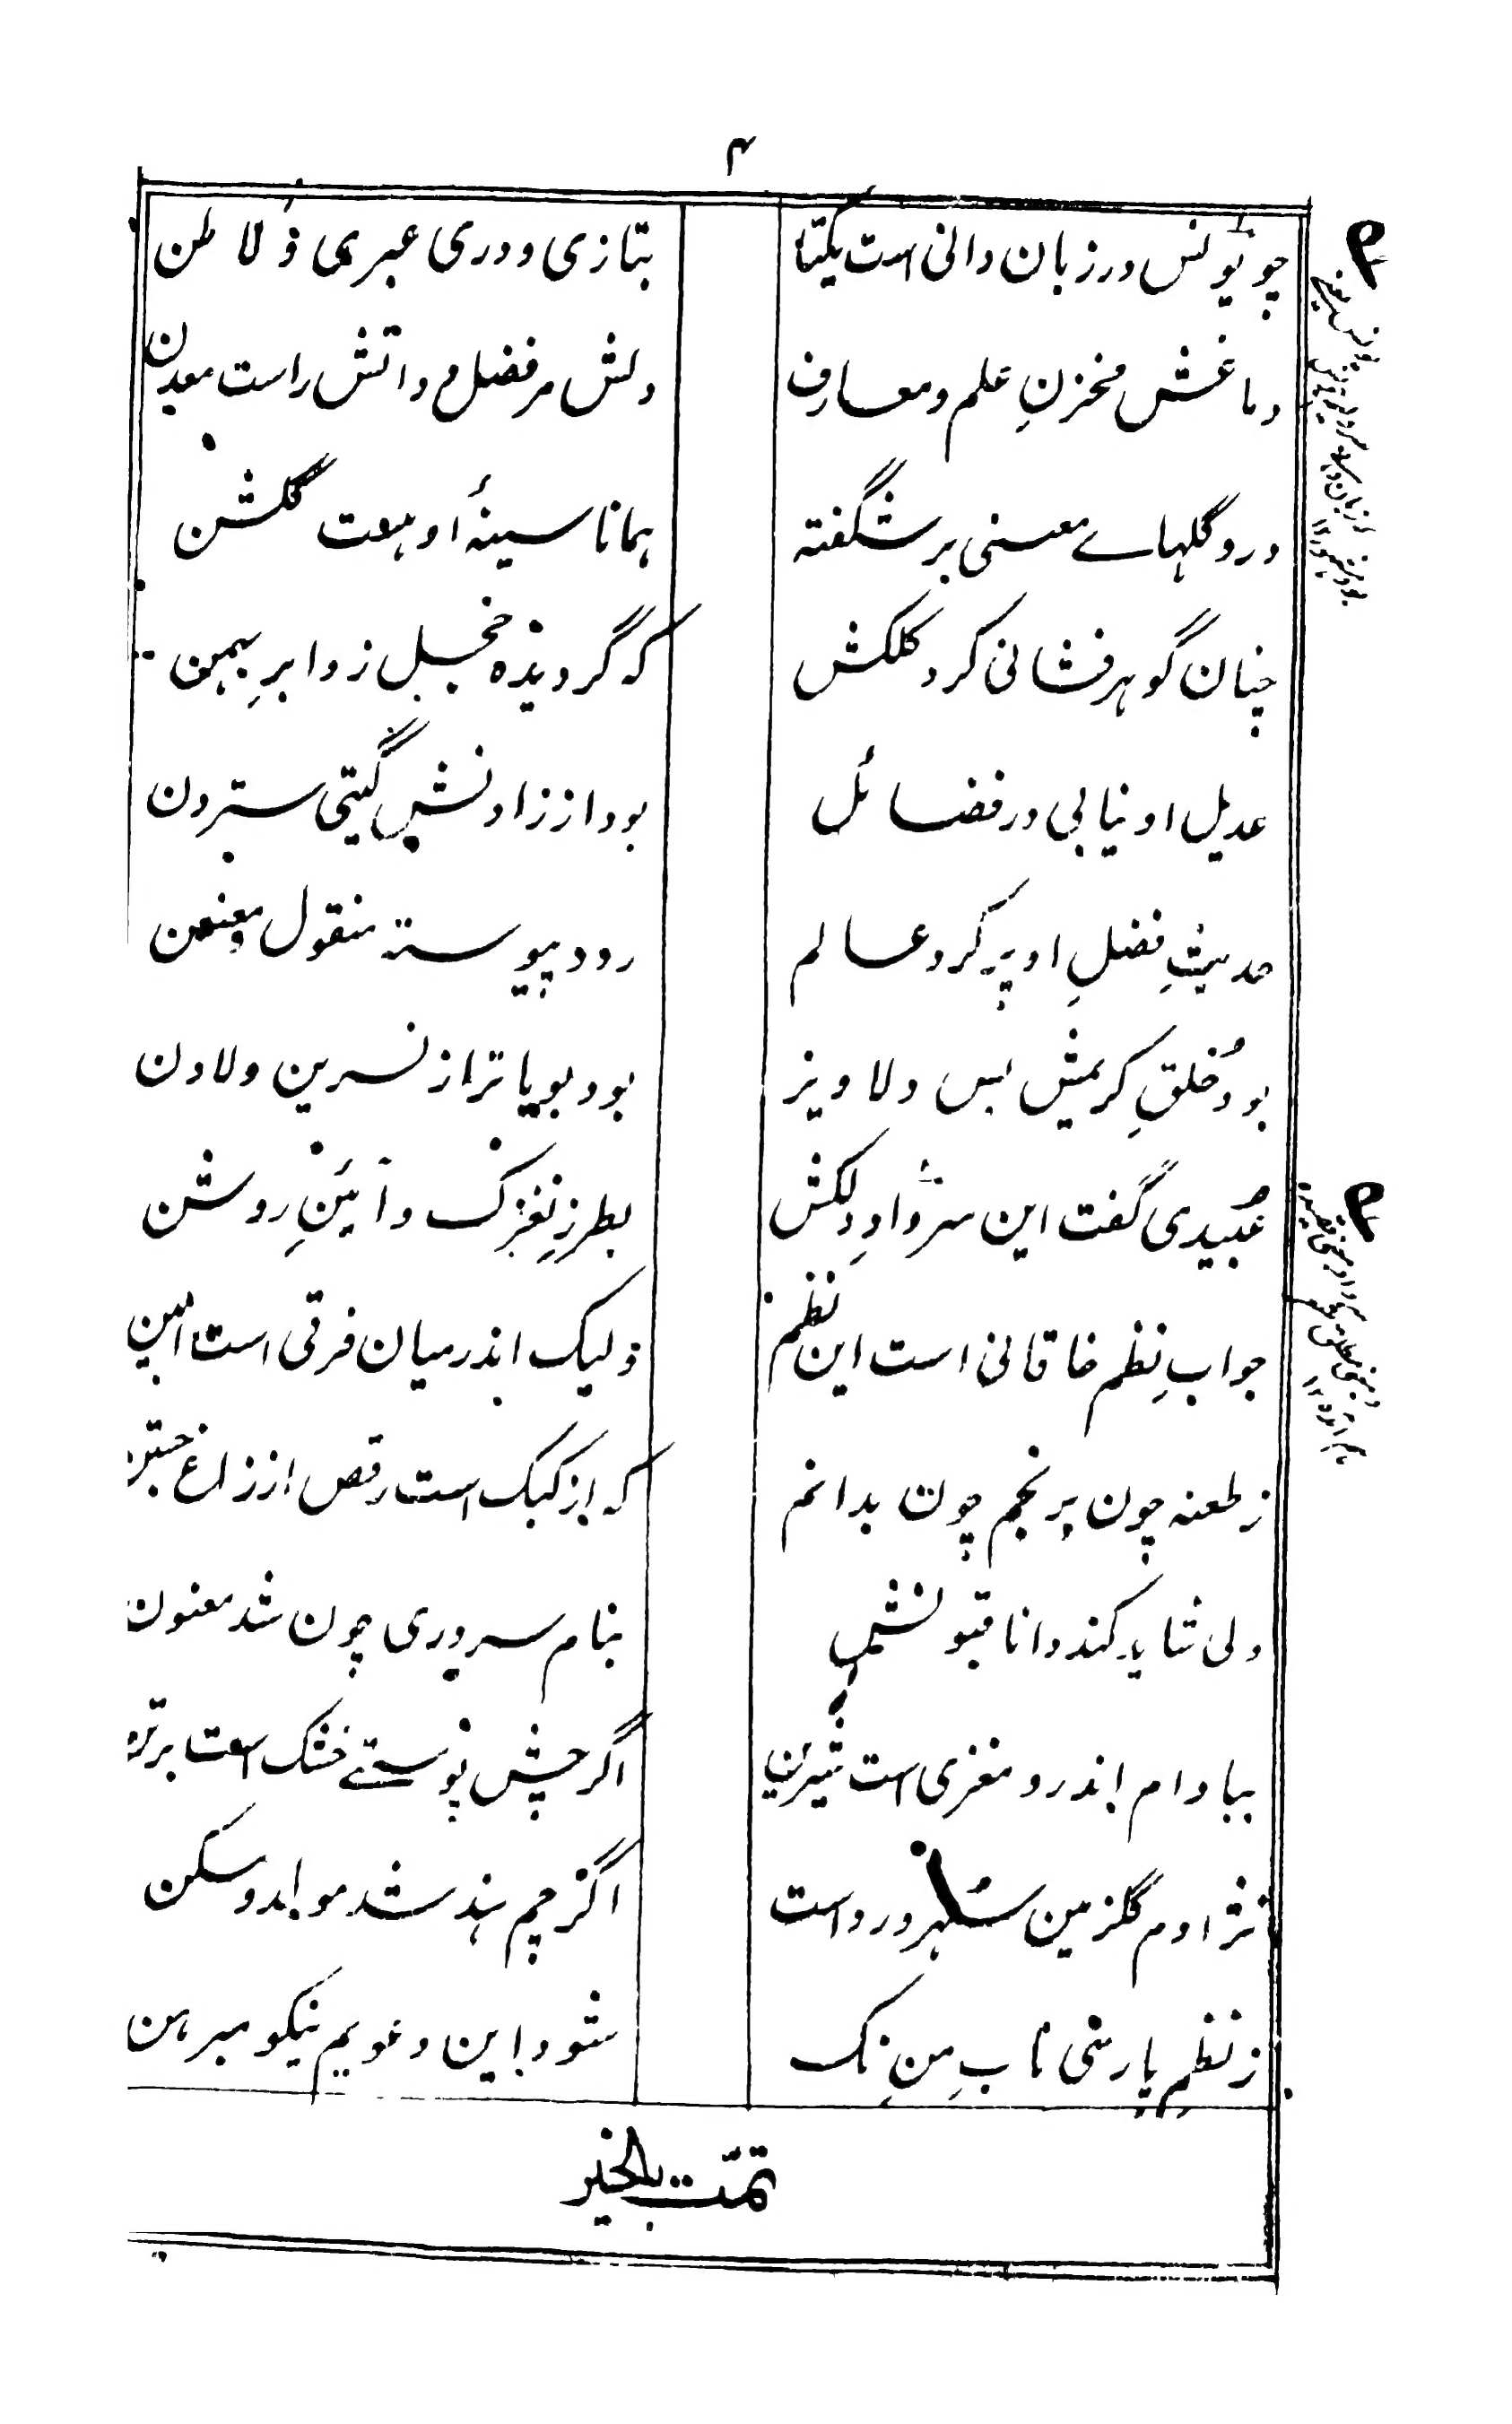 ۴
چو یونس در زبان دانی است یکتا
بتازی و دری عبری و لاطن
دماغش مخزنِ علم و معارف
دلش مر فضل و دانش راست معدن
درو گلهاے معنی بر شگفته
همانا سینۂ او هست گلشن
چنان گوهر فشانی کرد کلکش
که گردیده خجل زو ابرِ بهمن
عدیل او نیابی در فضائل
بود از زادنش گیتی سترون
حدیثِ فضلِ او پر کرد عالم
رود پیوسته منقول و معنعن
بود خُلقِ کریمش بس دلاویز
بود بویا تر از نسرین و لادن
عُبیدی گفت این سرواد دلکش
بطرزِ نغزک و آئینِ روشن
جوابِ نظم خاقانی است این نظم
ولیک اندر میان فرقی است ابین
ز طعنه چون برنجم چون بدانم
که از کبک است رقص از زاغ جستن
ولی شاید کند دانا قبولش
بنام سروری چون شد معنون
ببادام اندرو مغزی است شیرین
اگرچش پوستے خشک است برتن
نژادم گلزمین سُهرورد است
اگرچم هند شد مولد و مسکن
ز نظمِ پارسی نابِ من نک
شود این دعویم نیکو مبرهن
تمّت بالخیر